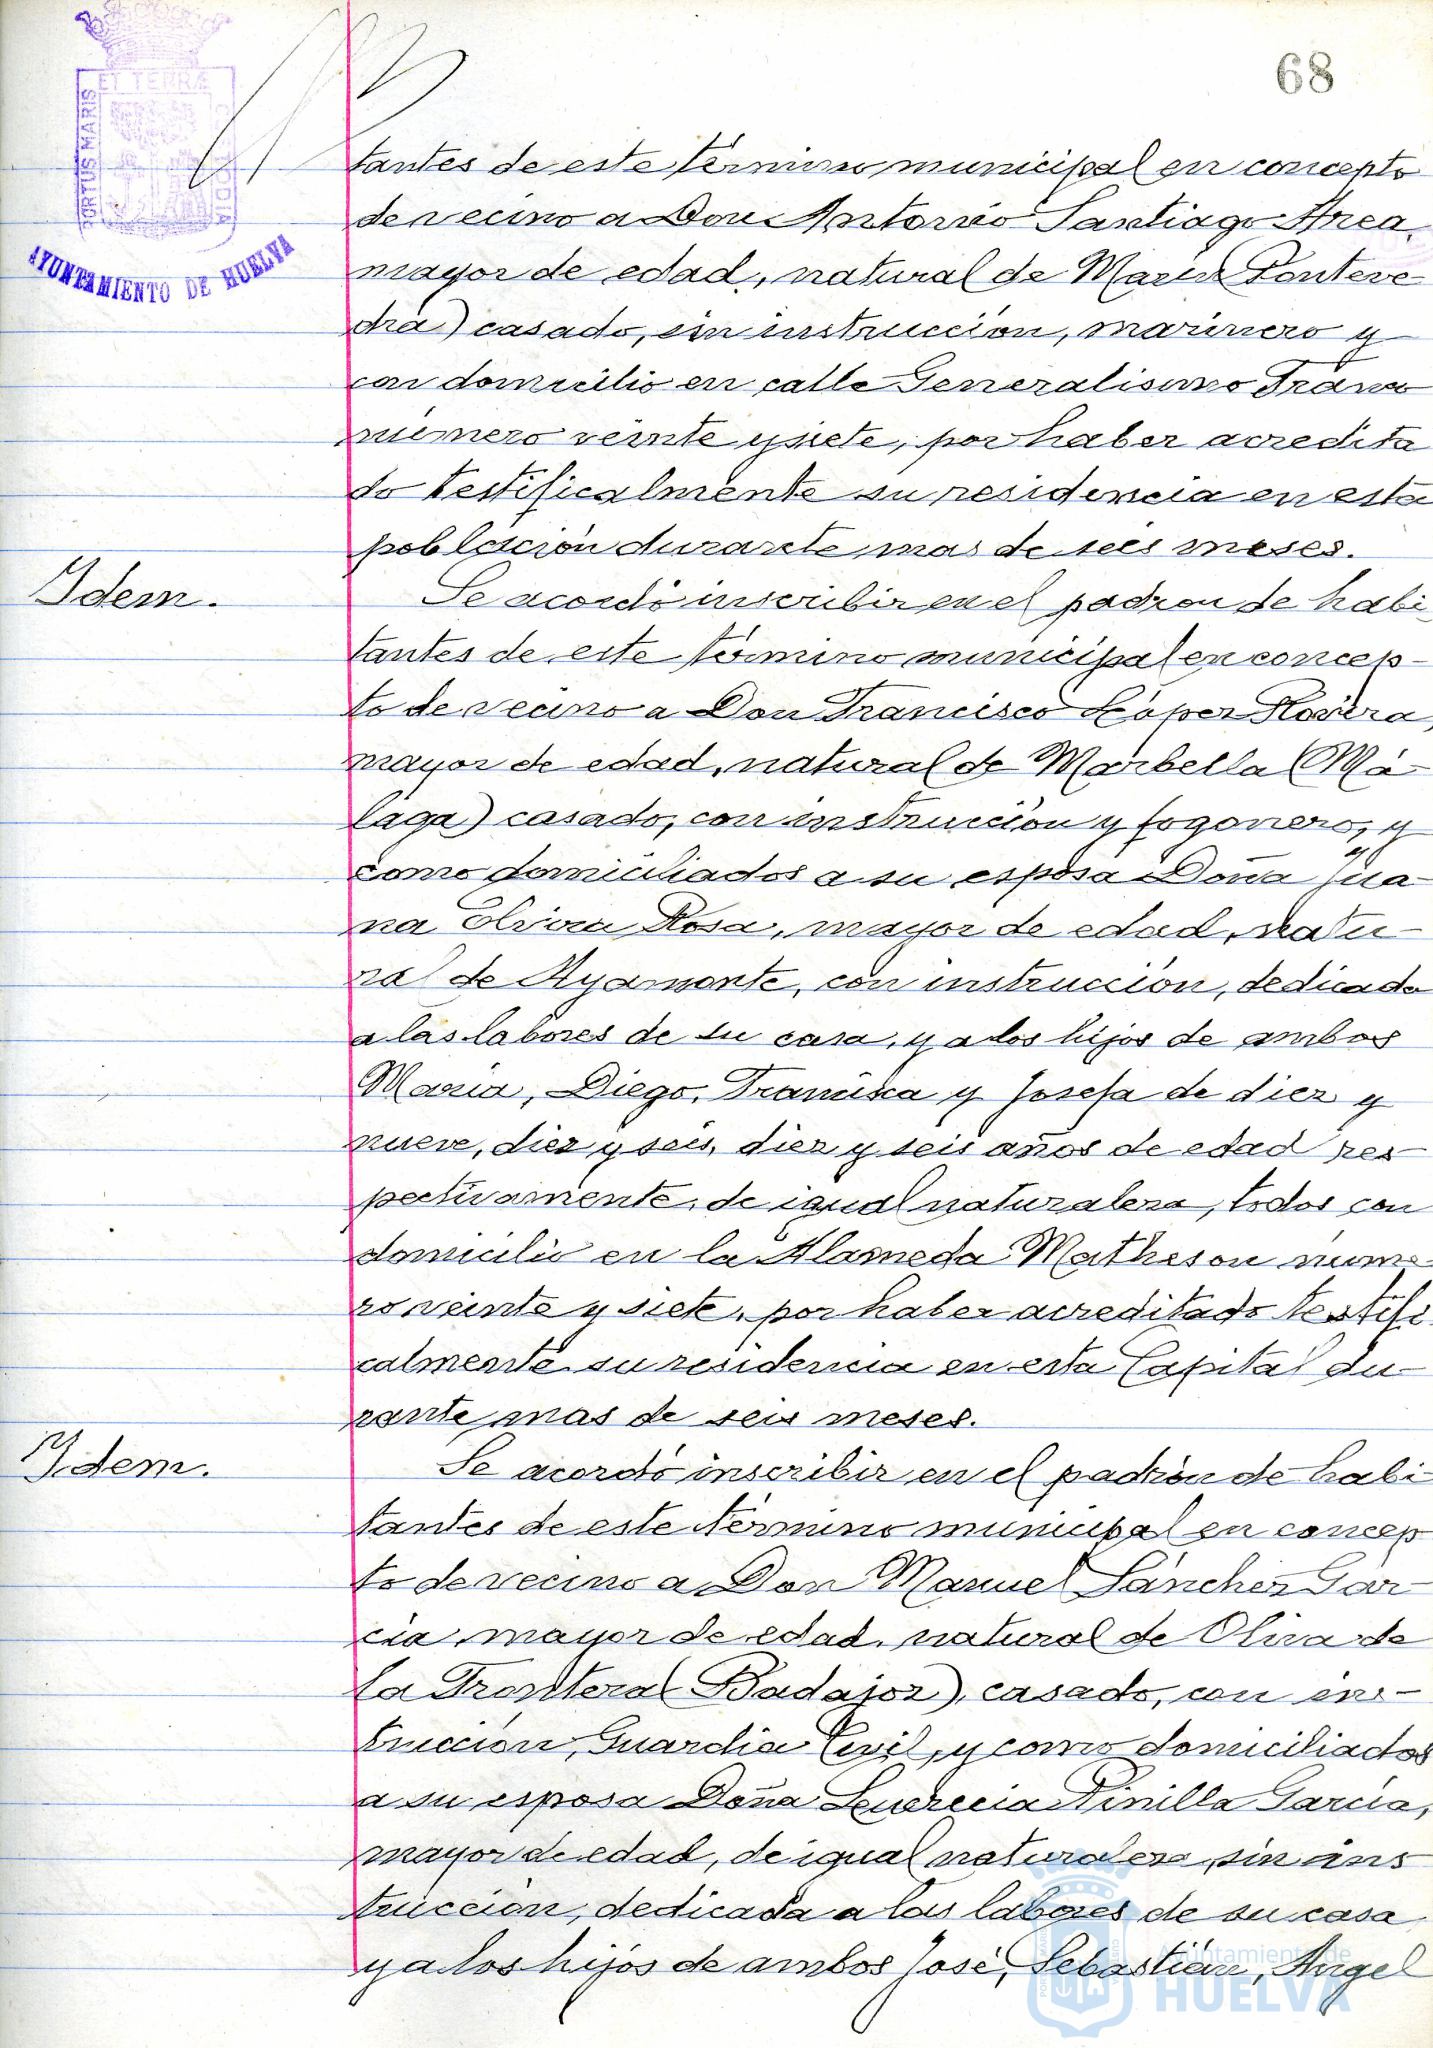 68
ET TERRÆ
PORTUS MARIS
CUSTODIA
AYUNTAMIENTO DE HUELVA
tantes de este término municipal en concepto
de vecino a Don Antonio Santiago Area,
mayor de edad, natural de Marín (Ponteve
dra) casado, sin instrucción, marinero y
con domicilio en calle Generalisimo Franco
número veinte y siete, por haber acredita
do testificalmente su residencia en esta
población durante mas de seis meses.
Idem.
Se acordó inscribir en el padron de habi
tantes de este término municipal en concep-
to de vecino a Don Francisco López Rovira,
mayor de edad, natural de Marbella (Má-
laga) casado, con instrucción y fogonero, y
como domiciliados a su esposa Doña Jua-
na Olvera Rosa, mayor de edad, natu-
ral de Ayamonte, con instrucción, dedicada
a las labores de su casa, y a los hijos de ambos
Maria, Diego, Francisca y Josefa de diez y
nueve, diez y seis, diez y seis años de edad res-
pectivamente, de igual naturaleza, todos con
domicilio en la Alameda Matheson núme-
ro veinte y siete, por haber acreditado testifi
calmente su residencia en esta Capital du-
rante mas de seis meses.
Idem.
Se acordó inscribir en el padrón de habi-
tantes de este término municipal en concep
to de vecino a Don Manuel Sánchez Gar-
cia, mayor de edad, natural de Oliva de
la Frontera (Badajoz), casado, con ins-
trucción, Guardia Civil, y como domiciliados
a su esposa Doña Lucrecia Pinilla García,
mayor de edad, de igual naturaleza, sin ins
trucción, dedicada a las labores de su casa
y a los hijos de ambos José, Sebastián, Angel
Ayuntamiento de
HUELVA